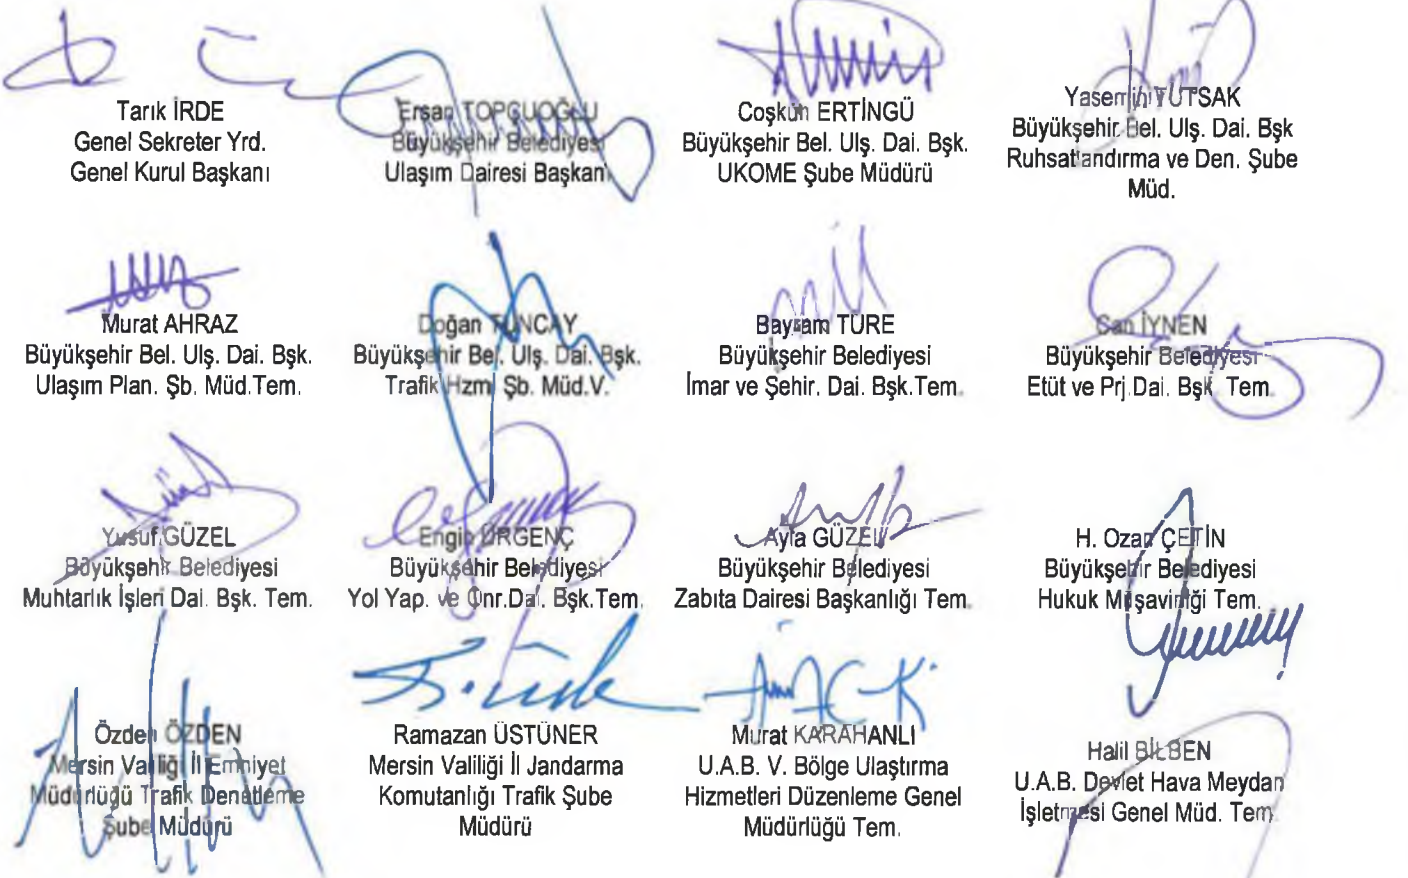 Tarık İRDE
Genel Sekreter Yrd.
Genel Kurul Başkanı
Ersan TOPCUOĞLU
Büyükşehir Belediyesi
Ulaşım Dairesi Başkanı
Coşkun ERTİNGÜ
Büyükşehir Bel. Ulş. Dai. Bşk.
UKOME Şube Müdürü
Yasemin TUTSAK
Büyükşehir Bel. Ulş. Dai. Bşk
Ruhsatlandırma ve Den. Şube
Müd.
Murat AHRAZ
Büyükşehir Bel. Ulş. Dai. Bşk.
Ulaşım Plan. Şb. Müd.Tem.
Doğan TUNCAY
Büyükşehir Bel. Ulş. Dai. Bşk.
Trafik Hzm. Şb. Müd.V.
Bayram TÜRE
Büyükşehir Belediyesi
İmar ve Şehir. Dai. Bşk.Tem.
Can İYNEN
Büyükşehir Belediyesi
Etüt ve Prj.Dai. Bşk. Tem.
Yusuf GÜZEL
Büyükşehir Belediyesi
Muhtarlık İşleri Dai. Bşk. Tem.
Engin ÜRGENÇ
Büyükşehir Belediyesi
Yol Yap. ve Onr.Dai. Bşk.Tem.
Ayla GÜZEL
Büyükşehir Belediyesi
Zabıta Dairesi Başkanlığı Tem.
H. Ozan ÇETİN
Büyükşehir Belediyesi
Hukuk Müşavirliği Tem.
Özden ÖZDEN
Mersin Valiliği İl Emniyet
Müdürlüğü Trafik Denetleme
Şube Müdürü
Ramazan ÜSTÜNER
Mersin Valiliği İl Jandarma
Komutanlığı Trafik Şube
Müdürü
Murat KARAHANLI
U.A.B. V. Bölge Ulaştırma
Hizmetleri Düzenleme Genel
Müdürlüğü Tem.
Halil BİLBEN
U.A.B. Devlet Hava Meydan
İşletmesi Genel Müd. Tem.